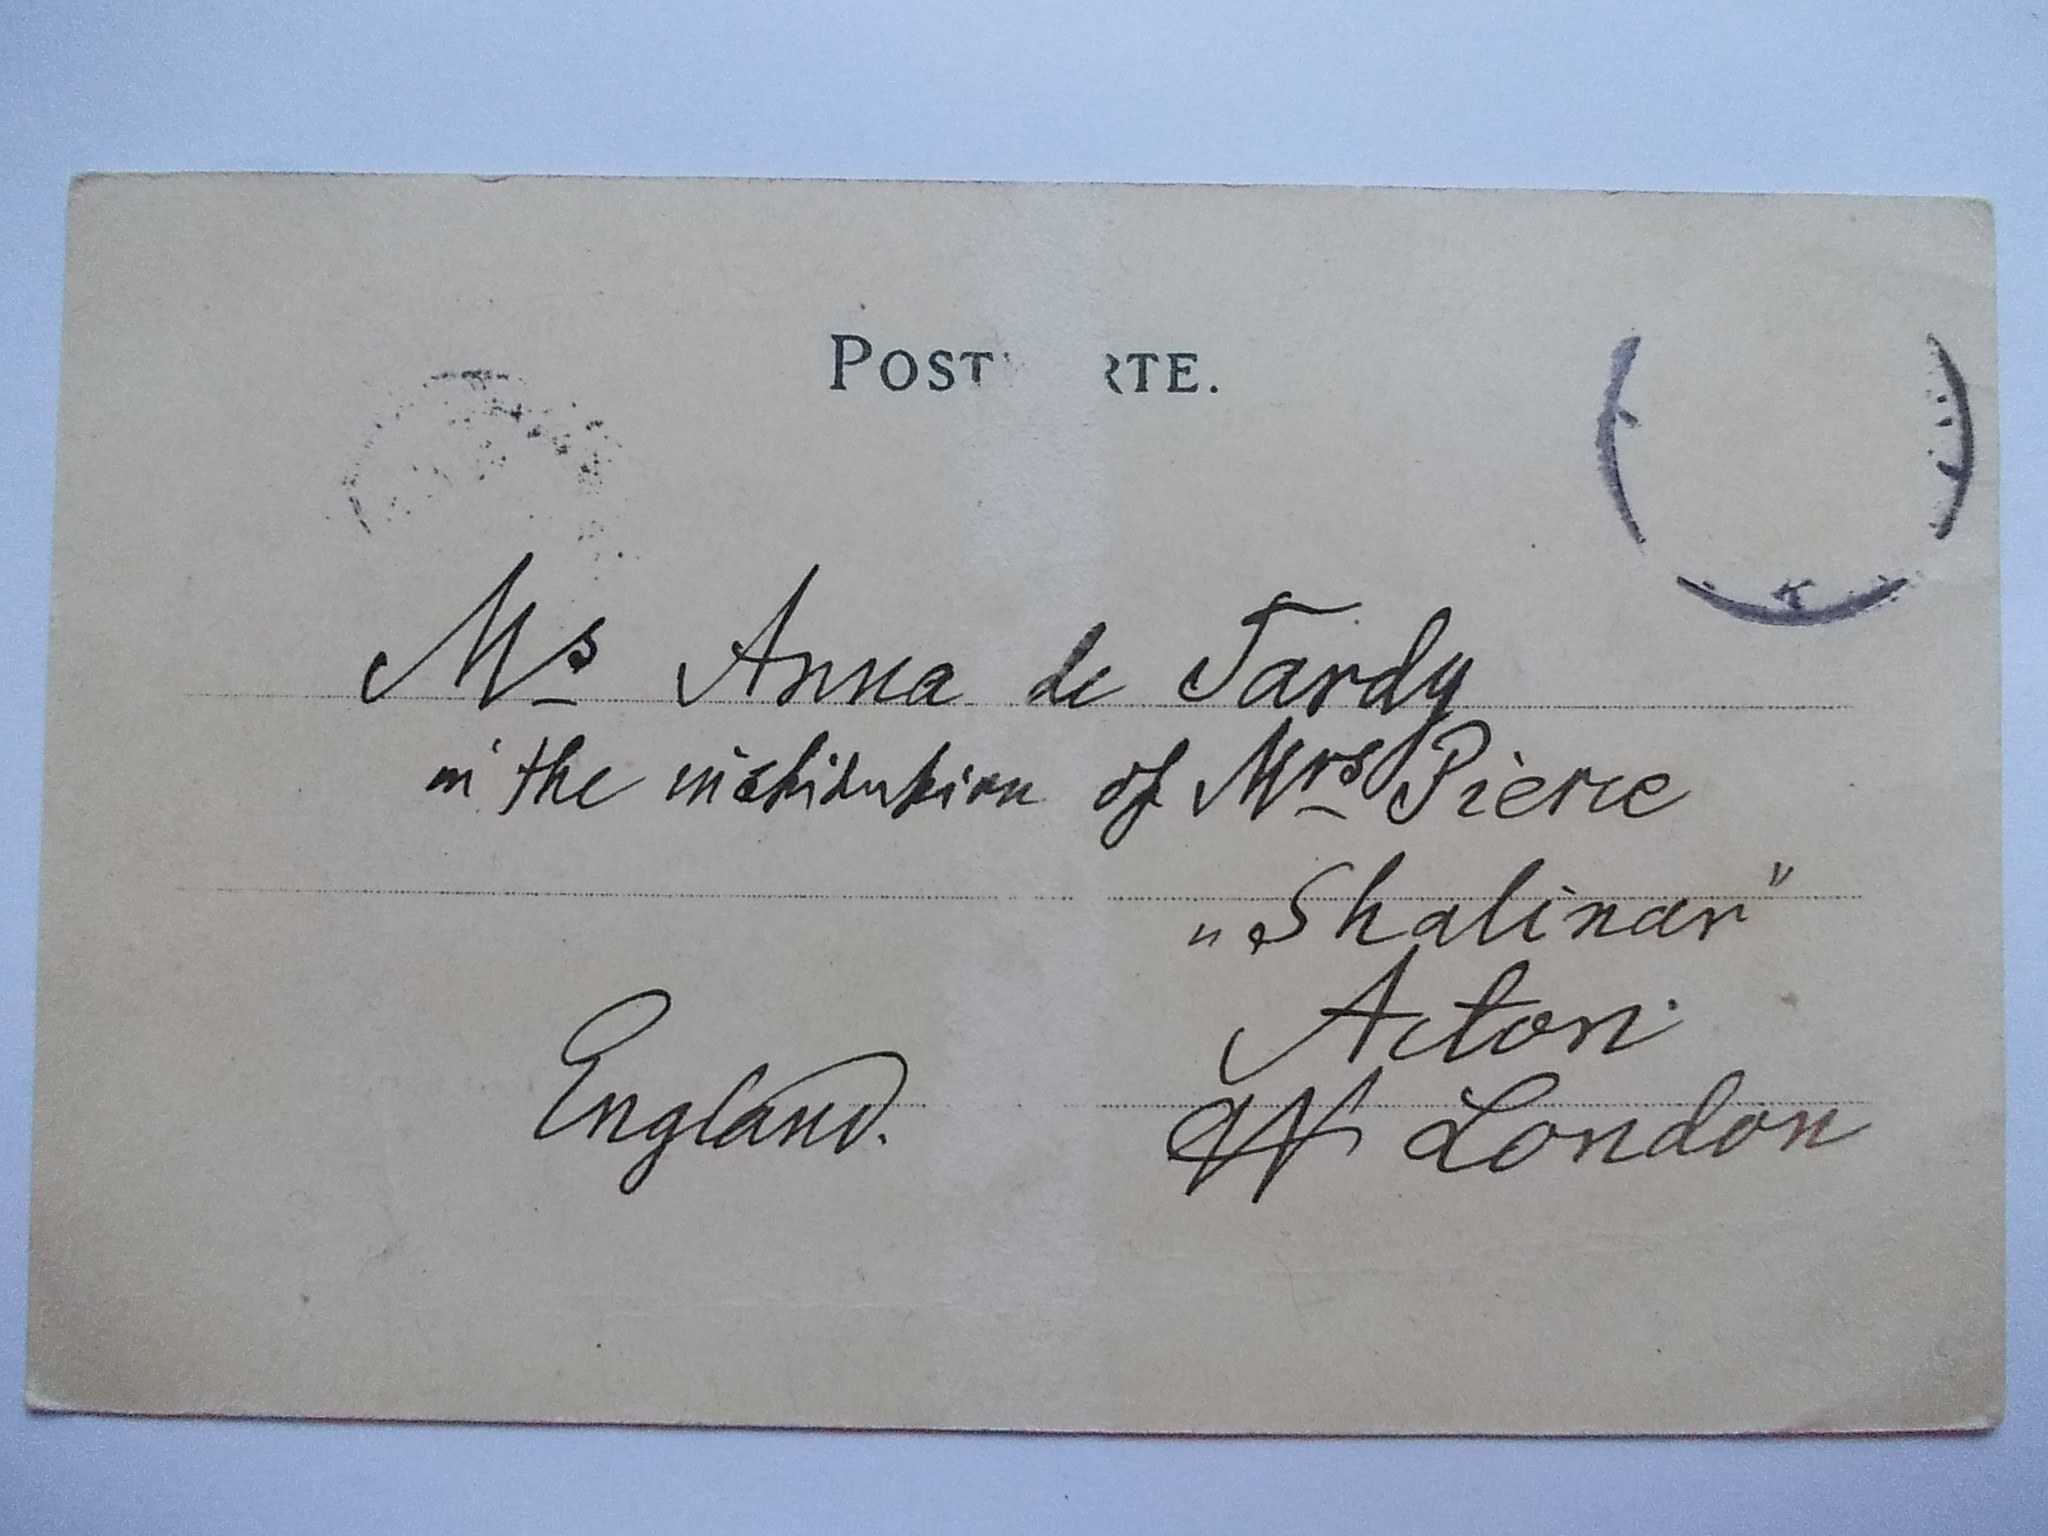 POST RTE.
Ms Anna de Tardy
in the institution of Mrs Pierce
„Shalinar"
Acton
W London
England.